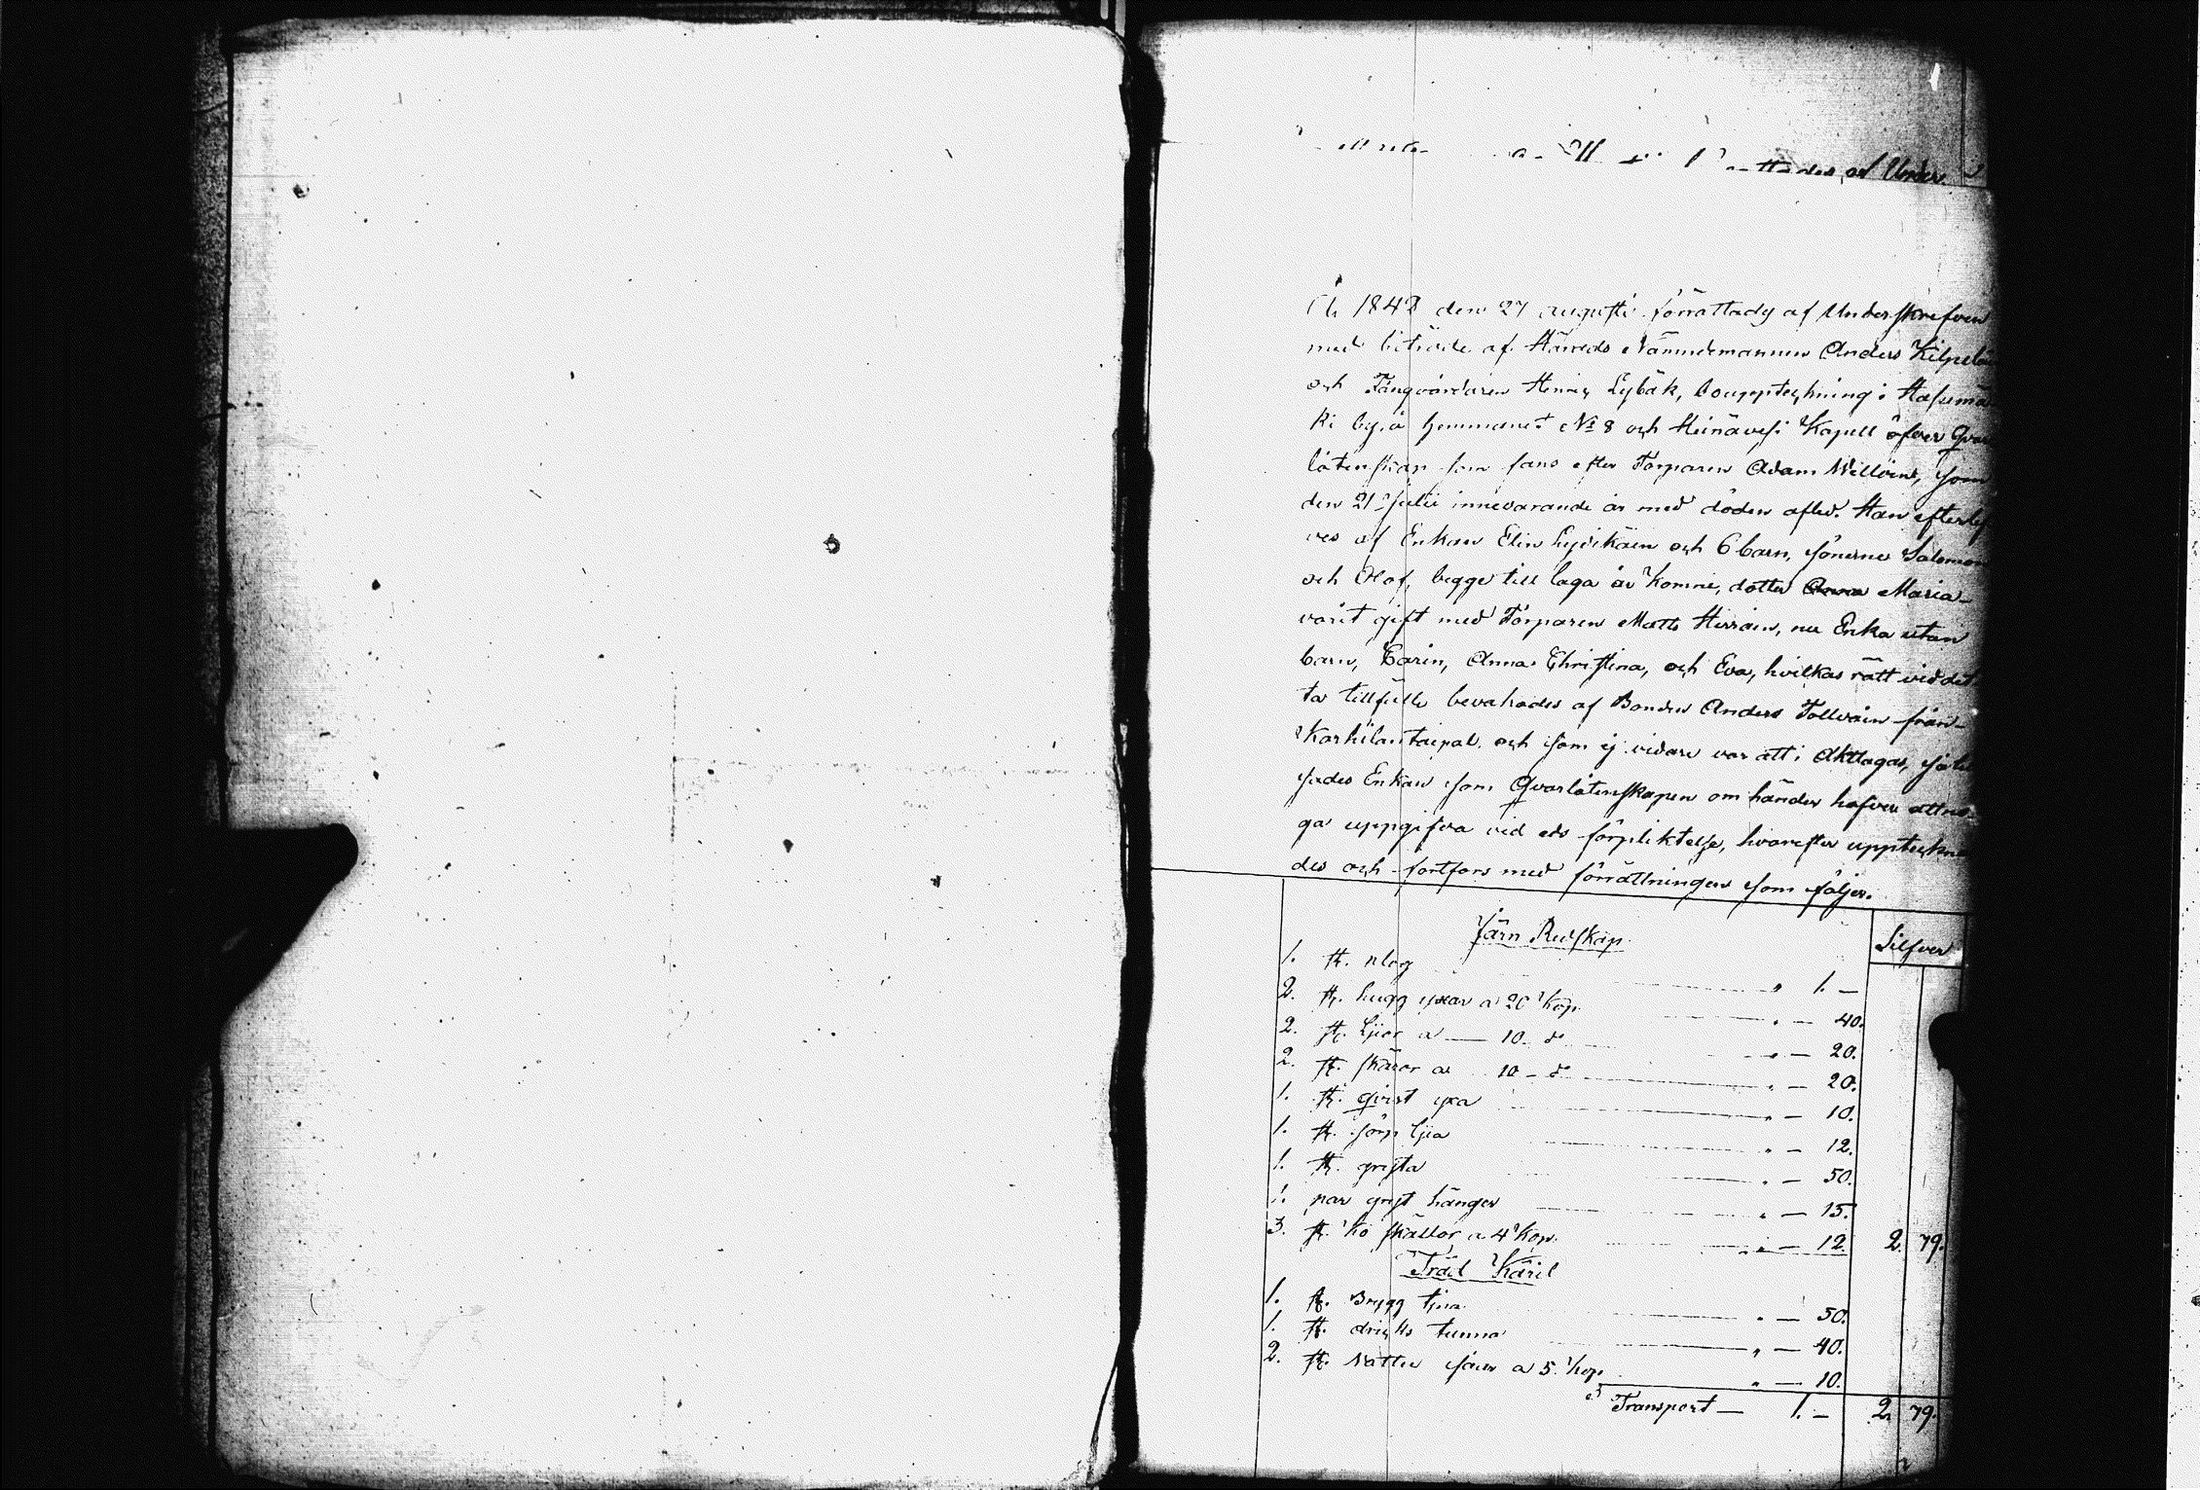 ttades af Under
År 1842 den 27 Augusti förrättades af Underskrefven
med biträde af Härreds Nämndemannen Anders Kilpeläi
och Fångvårdaren Henric Lybäk, bouppteckning i Hasumä
ki by, å hemmanet No 8 och Heinävesi Kapell öfver Qvar
låtenskap som fans efter Torparen Adam Willoin, som
den 21 Julii innevarande år med döden afled. Han efterlef
ves af Enkan Elin Lyikäin och 6 barn, sönerne Salomon
och Olof, begge till laga år komne, dotter Anna Maria
varit gift med Torparen Matts Hirvoin, nu Enka utan
barn, Carin, Anna Christina, och Eva, hvilkas rätt vid det
ta tillfälle bevakades af Bonden Anders Tollvain från
Karhilantaipal, och som ej vidare var att i Akttagas, så til
sades Enkan som Qvarlåtenskapen om händer hafver att no
ga uppgifva vid eds förpliktelse, hvarefter upptekna
des och fortfors med förrättningen som följer.
Järn Redskap. Silfver
1. st. plog " 1. —
2. st. hugg yxar a 20 kop. " — 40.
2. st. Ljior a — 10 do " — 20.
2. st. skäror a 10 — do " — 20.
1. st. qvist yxa " — 10.
1. st. sörp Ljia " — 12.
1. st. gryta " — 50.
1. par gryt hänger " — 15.
3. st. ko skällor a 4 kop. " — 12. 2. 79.
Träd Käril
1. st. Brygg tjna " — 50.
1. st. dricks tunna " — 40.
2. st. Vatten såar a 5 kop. " — 10.
Transport — 1. — 2. 79.